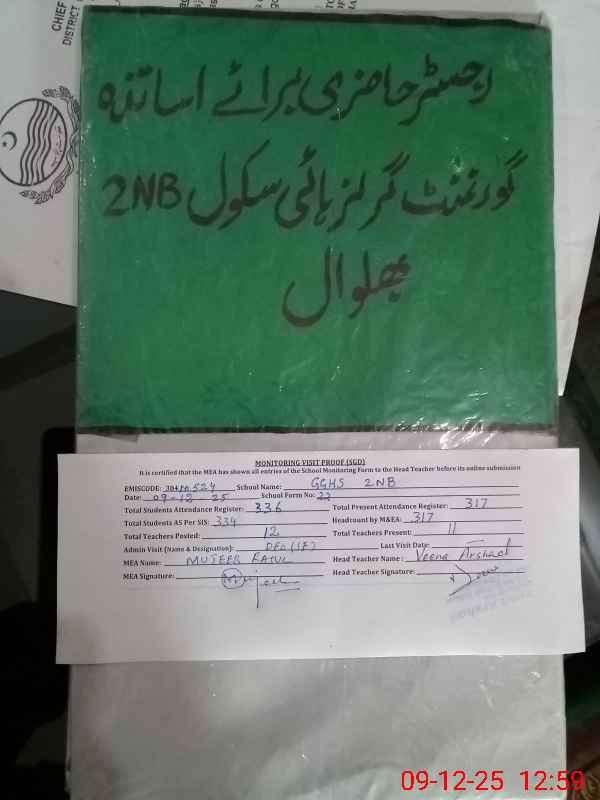 CHIEF
DISTRICT
رجسٹر حاضری برائے اساتذہ
گورنمنٹ گرلز ہائی سکول 2NB
بھلوال
MONITORING VISIT PROOF (SGD)
It is certified that the MEA has shown all entries of the School Monitoring Form to the Head Teacher before its online submission
EMISCODE: 524 School Name: GGHS 2NB
Date: 09-12-25 School Form No: 22
Total Students Attendance Register: 336 Total Present Attendance Register: 317
Total Students AS Per SIS: 334 Headcount by M&EA: 317
Total Teachers Posted: 12 Total Teachers Present: 11
Admin Visit (Name & Designation): DEO (SE) Last Visit Date:
MEA Name: MUJEEB Head Teacher Name: Veena Arshad
MEA Signature: Head Teacher Signature:
09-12-25 12:59